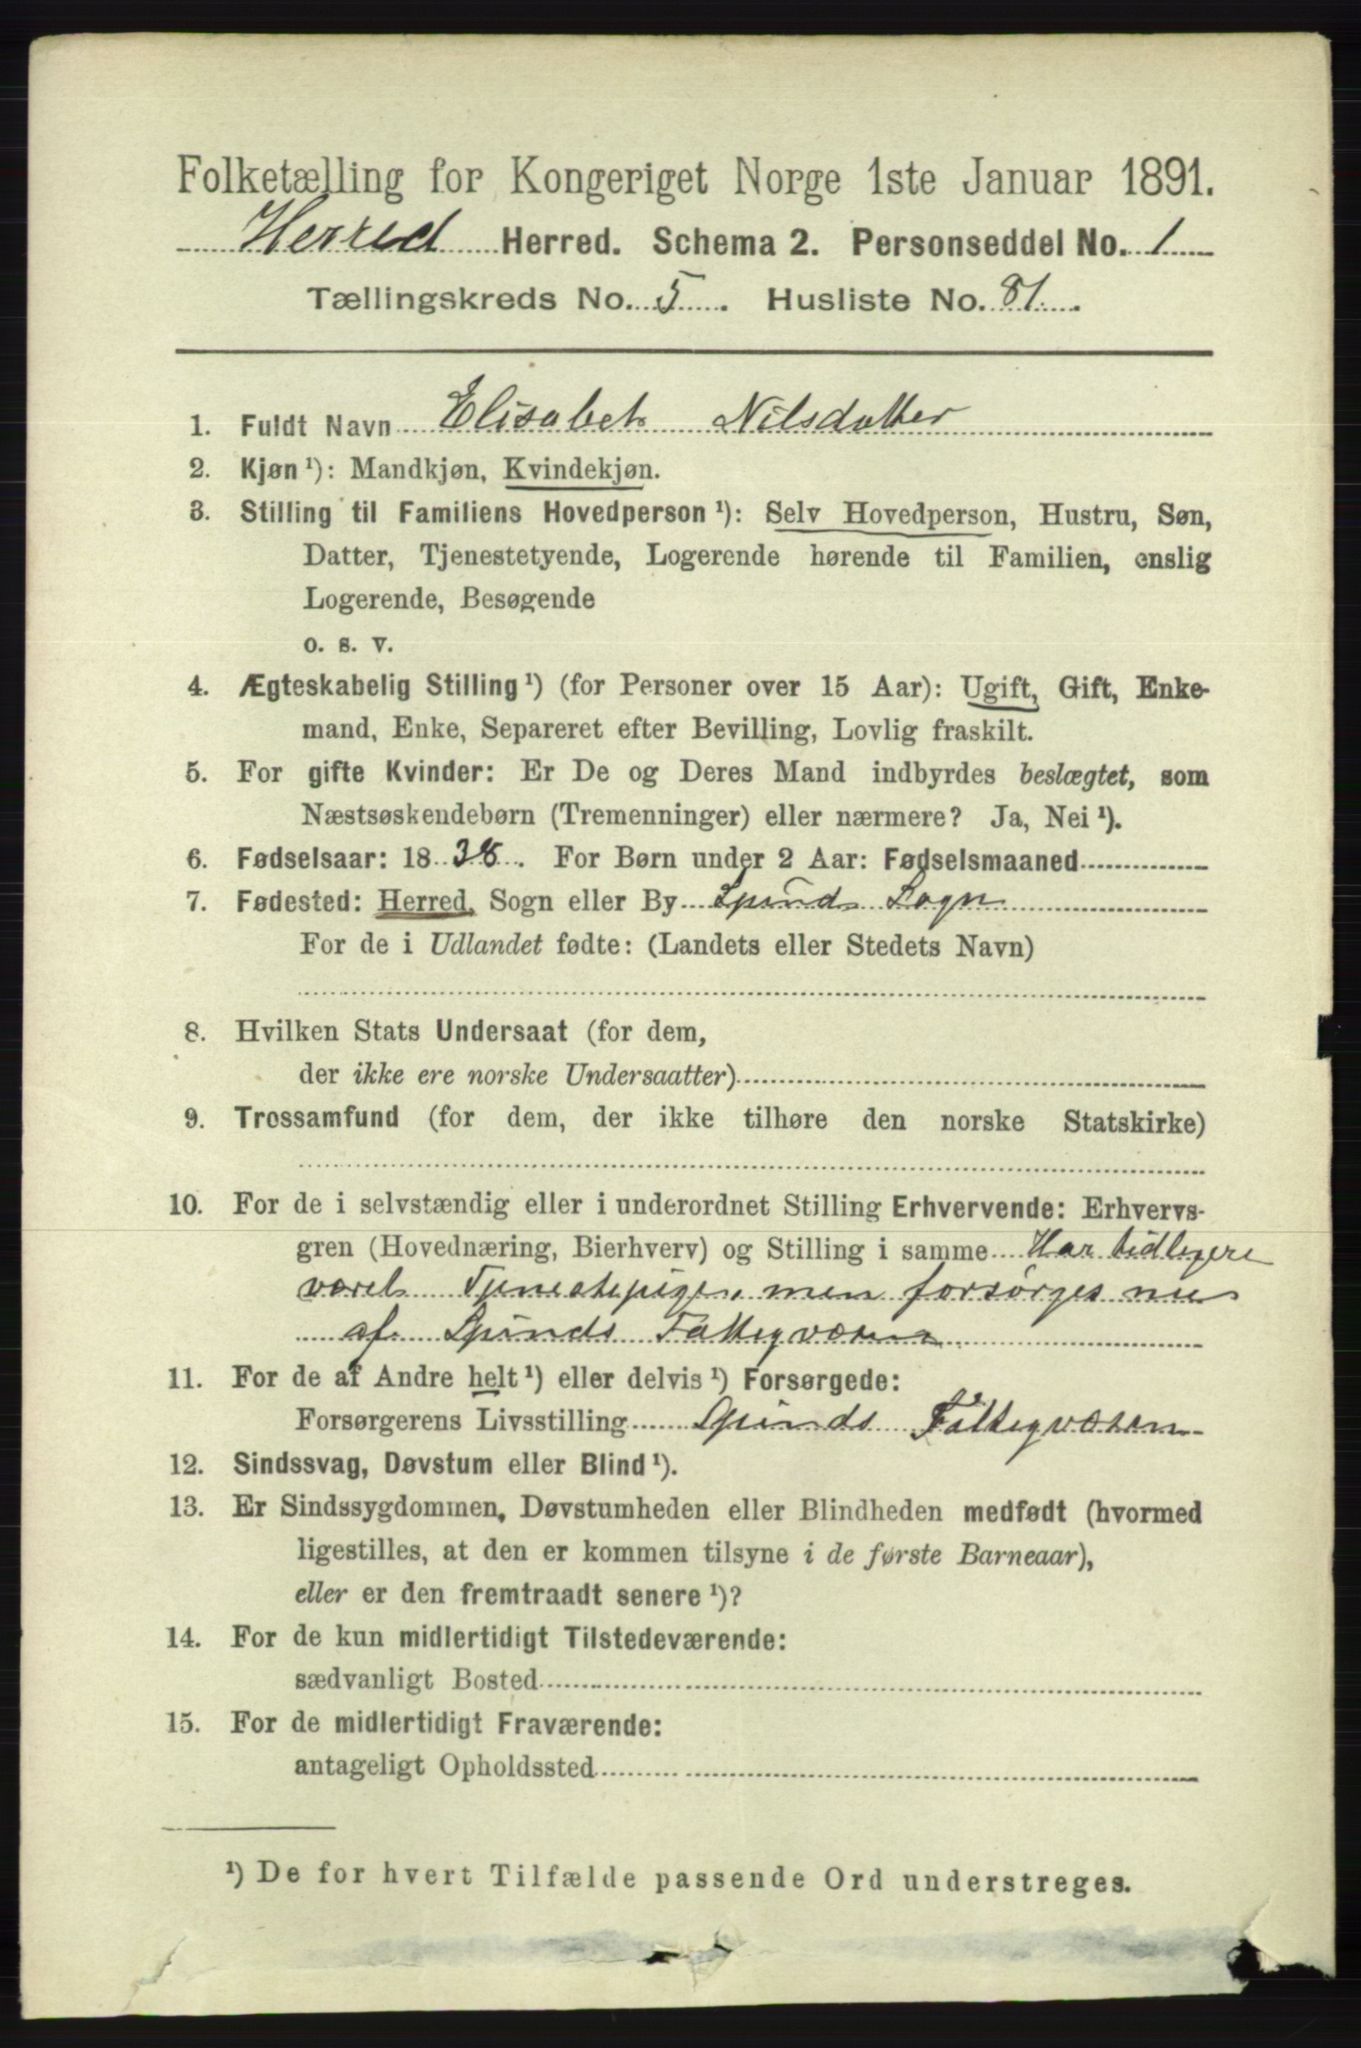 Folketælling for Kongeriget Norge 1ste Januar 1891.
Herred Herred. Schema 2. Personseddel No. 1
Tællingskreds No. 5. Husliste No. 81.
1. Fuldt Navn Elisabet Nilsdatter
2. Kjøn ¹): Mandkjøn, Kvindekjøn.
3. Stilling til Familiens Hovedperson ¹): Selv Hovedperson, Hustru, Søn,
Datter, Tjenestetyende, Logerende hørende til Familien, enslig
Logerende, Besøgende
o. s. v.
4. Ægteskabelig Stilling ¹) (for Personer over 15 Aar): Ugift, Gift, Enke-
mand, Enke, Separeret efter Bevilling, Lovlig fraskilt.
5. For gifte Kvinder: Er De og Deres Mand indbyrdes beslægtet, som
Næstsøskendebørn (Tremenninger) eller nærmere? Ja, Nei ¹).
6. Fødselsaar: 1838. For Børn under 2 Aar: Fødselsmaaned
7. Fødested: Herred, Sogn eller By Spinds Sogn
For de i Udlandet fødte: (Landets eller Stedets Navn)
8. Hvilken Stats Undersaat (for dem,
der ikke ere norske Undersaatter)
9. Trossamfund (for dem, der ikke tilhøre den norske Statskirke)
10. For de i selvstændig eller i underordnet Stilling Erhvervende: Erhvervs-
gren (Hovednæring, Bierhverv) og Stilling i samme Har tidligere
været Tjenestepige, men forsørges nu
af Spinds Fattigvæsen
11. For de af Andre helt ¹) eller delvis ¹) Forsørgede:
Forsørgerens Livsstilling Spinds Fattigvæsen
12. Sindssvag, Døvstum eller Blind ¹).
13. Er Sindssygdommen, Døvstumheden eller Blindheden medfødt (hvormed
ligestilles, at den er kommen tilsyne i de første Barneaar),
eller er den fremtraadt senere ¹)?
14. For de kun midlertidigt Tilstedeværende:
sædvanligt Bosted
15. For de midlertidigt Fraværende:
antageligt Opholdssted
¹) De for hvert Tilfælde passende Ord understreges.